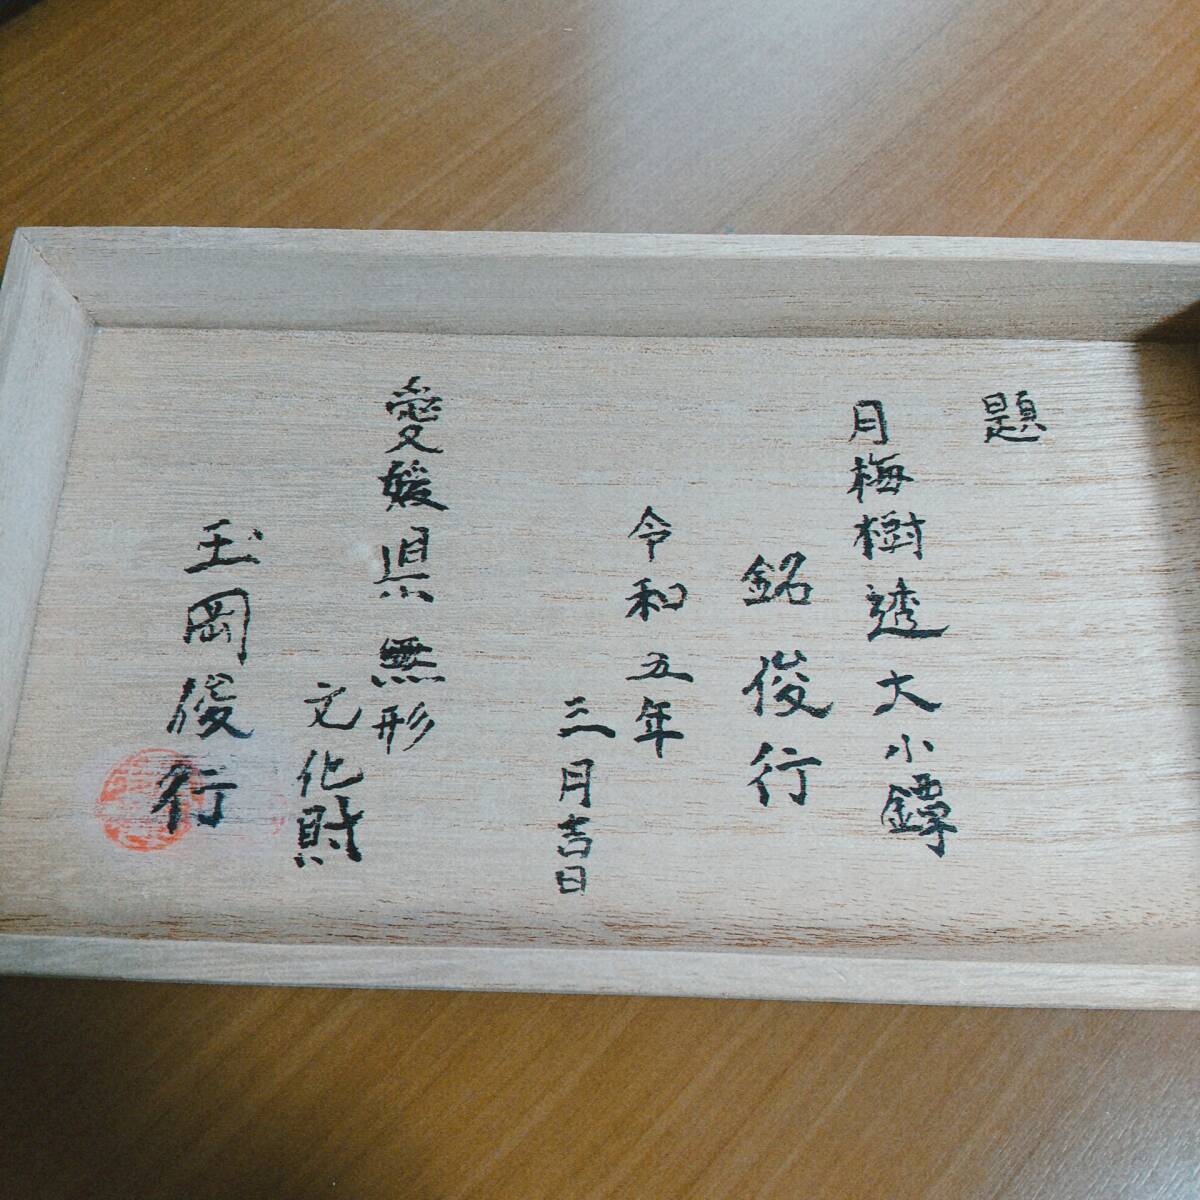 題
月梅樹透大小鐔
銘俊行
令和五年
三月吉日
愛媛県無形
文化財
玉岡俊行